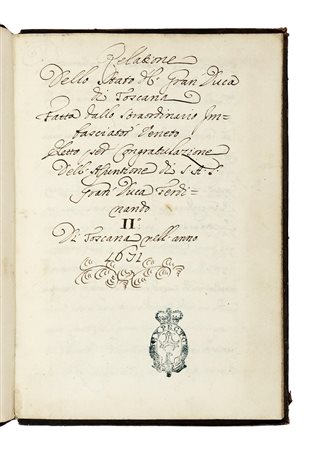 Relazione
Dello Stato del Gran Duca
di Toscana
Fatta dallo straordinario Im-
basciator Veneto
eletto per Congratulazione
Dell'Assuntione di S. A. S.
Gran Duca Ferdi-
nando
II°
Di Toscana nell'anno
1631